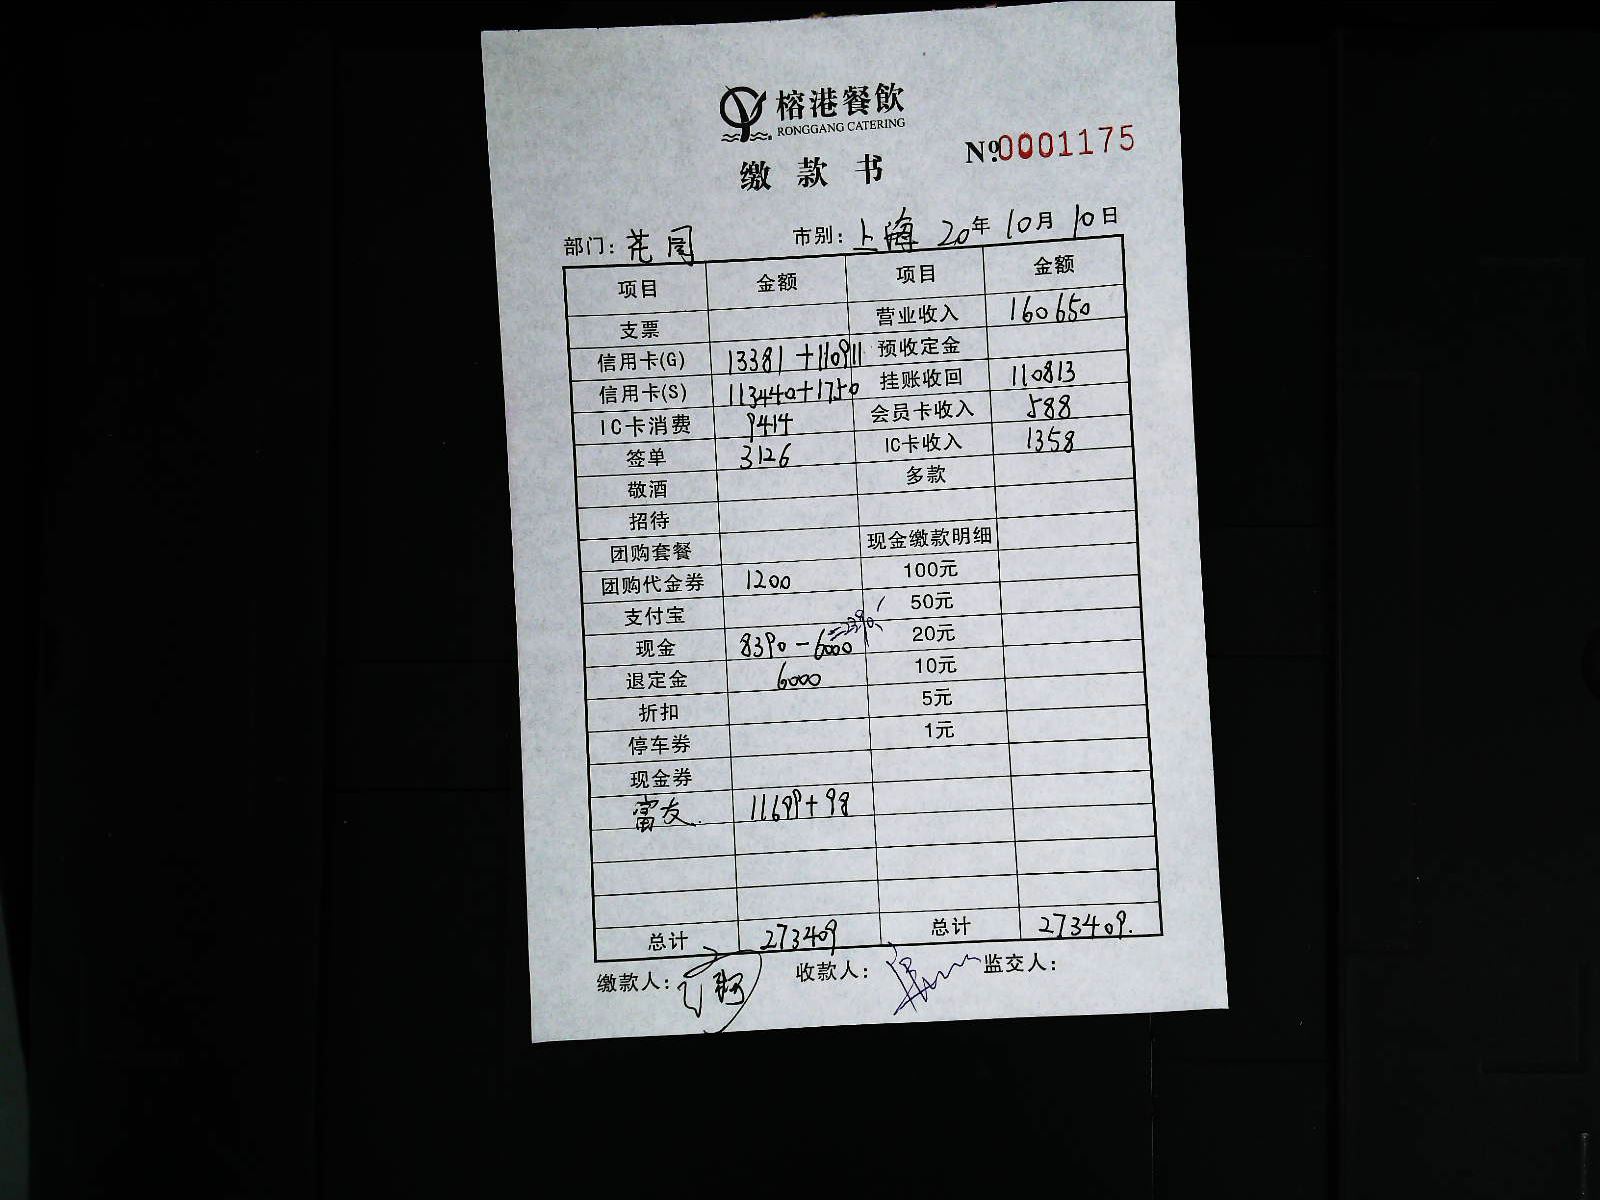 榕港餐飲
RONGGANG CATERING
缴款书
№0001175
部门：花园 市别：上海 20年10月10日
项目 金额 项目 金额
支票 营业收入 160650
信用卡(G) 13381+110911 预收定金
信用卡(S) 113440+1750 挂账收回 110813
IC卡消费 9414 会员卡收入 588
签单 3126 IC卡收入 1358
敬酒 多款
招待
团购套餐 现金缴款明细
团购代金券 1200 100元
支付宝 50元
现金 8390-6000=2390 20元
退定金 6000 10元
折扣 5元
停车券 1元
现金券
富友 11699+98
总计 273409 总计 273409.
缴款人： 收款人： 监交人：